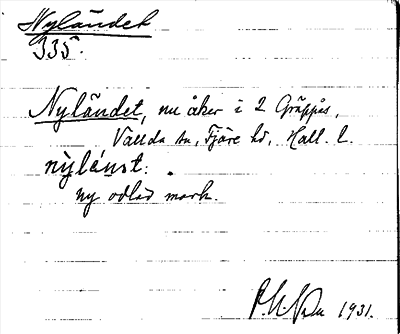 Nyländet
335.
Nyländet, nu åker i 2 Gräppås,
Vallda sn, Fjäre hd, Hall. l.
nỳlánst.
ny odlad mark.
1931.